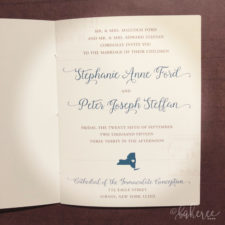 MR. & MRS. MALCOLM FORD
AND MR. & MRS. EDWARD STEFFAN
CORDIALLY INVITE YOU
TO THE MARRIAGE OF THEIR CHILDREN
Stephanie Anne Ford
AND
Peter Joseph Steffan
FRIDAY, THE TWENTY FIFTH OF SEPTEMBER
TWO THOUSAND FIFTEEN
THREE THIRTY IN THE AFTERNOON
Cathedral of the Immaculate Conception
125 EAGLE STREET
ALBANY, NEW YORK 12202